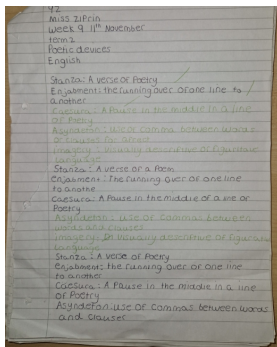 Y2
Miss Ziprin
Week 9 11th November
term 2
Poetic devices
English
Stanza: A verse of Poetry
Enjabment: the running over of one line to
another
Caesura: A Pause in the middle in a line
of Poetry
Asyndeton: Use of commas between words
or clauses
Imagery: Visually descriptive of figurative
language
Stanza: A verse of a Poem
Enjabment: The running over of one line
to another
Caesura: A Pause in the middle of a line of
Poetry
Asyndeton: use of commas between
words and clauses
Imagery: Visually descriptive of figurative
language
Stanza: A verse of Poetry
Enjabment: the running over of one line
to another
Caesura: A Pause in the middle in a line
of Poetry
Asyndeton: use of commas between words
and clauses